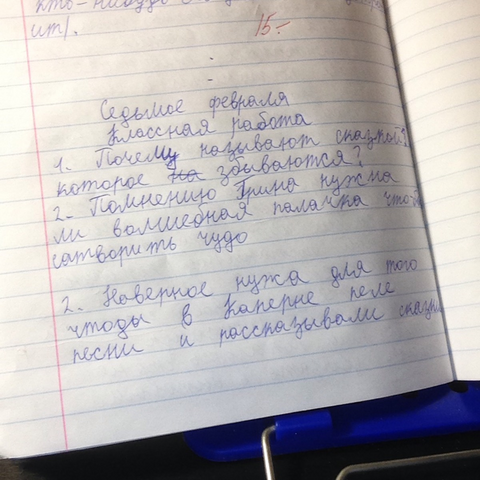 кто-нибудь
ит).
15.-
Седьмое февраля
Классная работа
1. Почему называют сказкой?
которое на збываются?
2. Помнению Грина нужна
ли волшебная палачка чтоб
сатворить чудо
2. Наверное нужа для того
чтоды в Каперне пеле
песни и рассказывали сказки